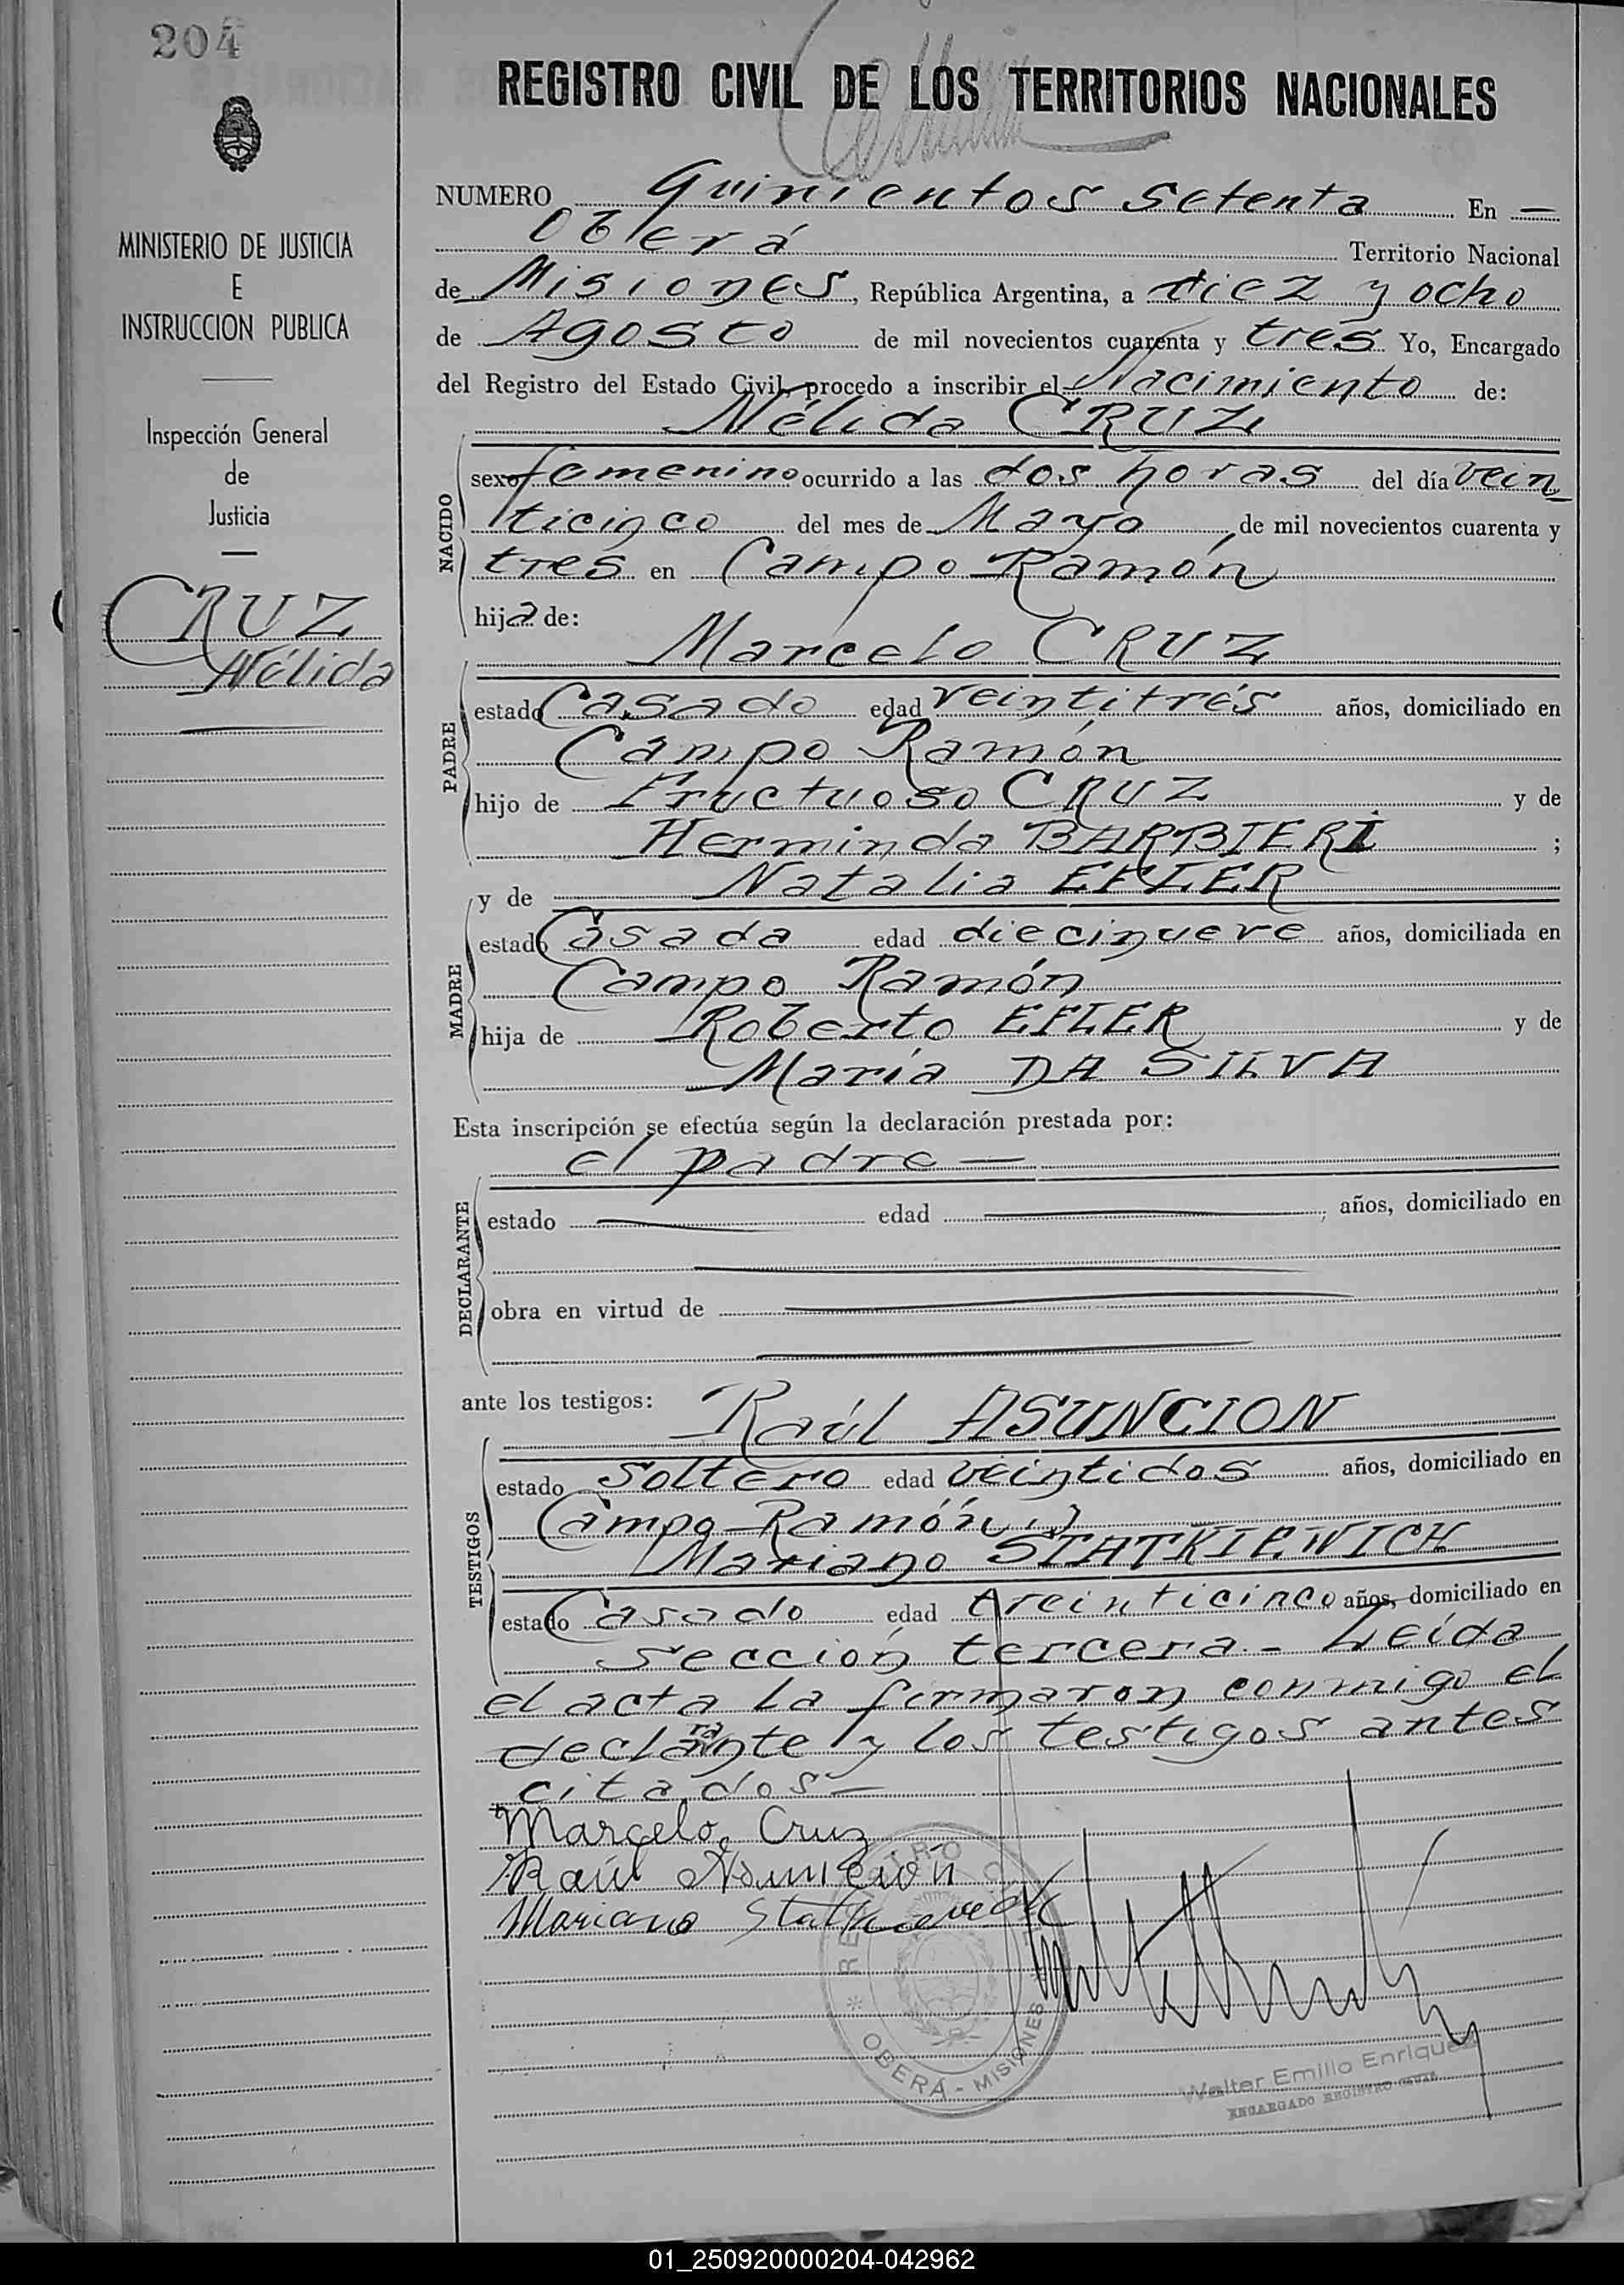 204
REGISTRO CIVIL DE LOS TERRITORIOS NACIONALES
MINISTERIO DE JUSTICIA
E
INSTRUCCION PUBLICA
Inspección General
de
Justicia
CRUZ
Nélida
NUMERO Quinientos setenta En —
Oberá Territorio Nacional
de Misiones, República Argentina, a diez y ocho
de Agosto de mil novecientos cuarenta y tres Yo, Encargado
del Registro del Estado Civil, procedo a inscribir el Nacimiento de:
Nélida CRUZ
NACIDO
sexo femenino ocurrido a las dos horas del día vein
ticinco del mes de Mayo, de mil novecientos cuarenta y
tres en Campo Ramón
hija de:
Marcelo CRUZ
PADRE
estado Casado edad veintitrés años, domiciliado en
Campo Ramón
hijo de Fructuoso CRUZ y de
Herminda BARBIERI ;
y de Natalia EFLER
MADRE
estado Casada edad diecinueve años, domiciliada en
Campo Ramón
hija de Roberto EFLER y de
María DA SILVA
Esta inscripción se efectúa según la declaración prestada por:
el padre —
DECLARANTE
estado edad años, domiciliado en
obra en virtud de
ante los testigos: Raúl ASUNCION
TESTIGOS
estado soltero edad veintidos años, domiciliado en
Campo Ramón y
Mariano STATKIEWICH
estado Casado edad treinticinco años, domiciliado en
sección tercera - Leída
el acta la firmaron conmigo el
declarante y los testigos antes
citados —
Marcelo Cruz
Raúl Asunción
Mariano
REGISTRO CIVIL
OBERÁ - MISIONES
Walter Emilio Enriquez
ENCARGADO REGISTRO CIVIL
01_250920000204-042962